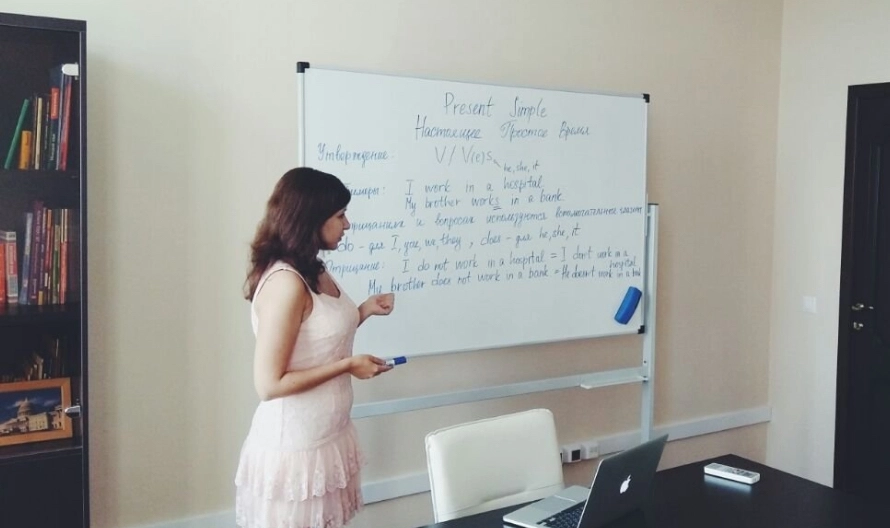 Present Simple
Настоящее Простое Время
Утверждение.
V/V(e)s
he, she, it
I work in a hospital
My brother works in a bank
и вопросах используются вспомогательные
do - для I, you, we, they, does - для he, she, it
Отрицание: I do not work in a hospital = I don't work in a hospital
My brother does not work in a bank = He doesn't work in a bank